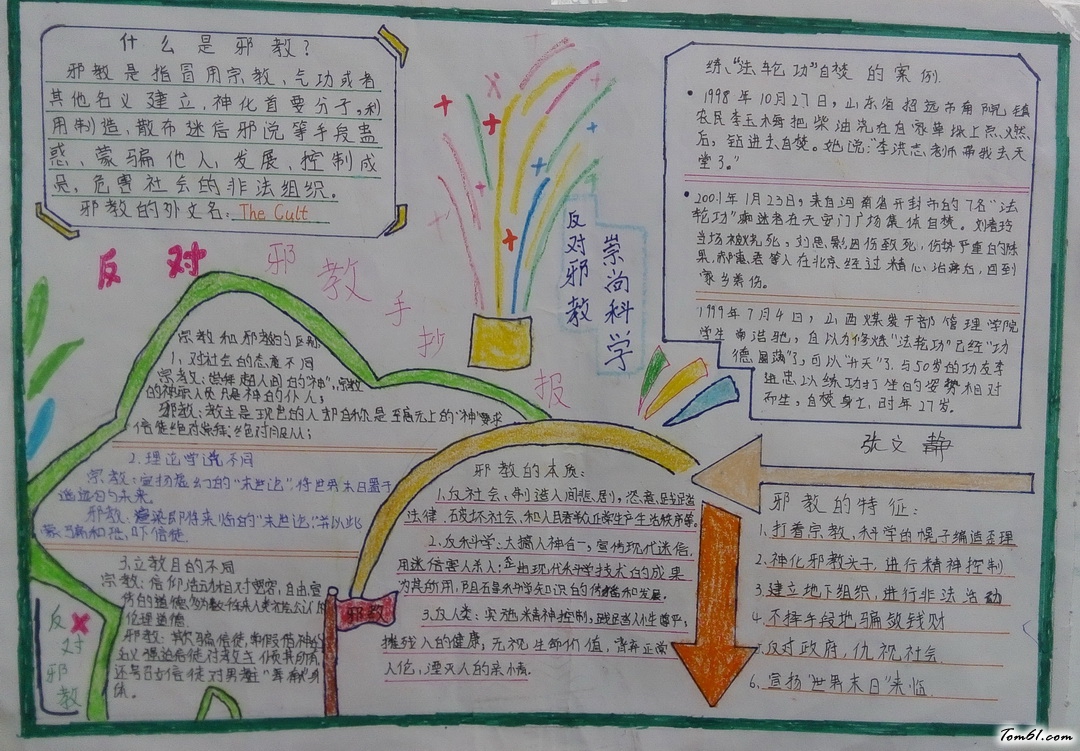 什么是邪教？
邪教是指冒用宗教、气功或者
其他名义建立，神化首要分子，利
用制造、散布迷信邪说等手段蛊
惑、蒙骗他人，发展、控制成
员，危害社会的非法组织。
邪教的外文名：The Cult
反对邪教手抄报
反对邪教
崇尚科学
练"法轮功"自焚的案例
1998年10月27日，山东省招远市
农民李玉梅把柴油浇在自家草垛上点燃
后，钻进去自焚。她说："李洪志老师带我去天
堂了。"
2001年1月23日，来自河南省开封市的7名"法
轮功"痴迷者在天安门广场集体自焚。刘春玲
当场被烧死，刘思影因伤致死，伤势严重的陈
果、郝惠君等人在北京经过精心治疗后，回到
家乡养伤。
1999年7月4日，山西煤炭干部管理学院
学生常浩驰，自以为修炼"法轮功"已经"功
德圆满"了，可以"升天"了，与50岁的功友李
进忠以练功打坐的姿势相对
而坐，自焚身亡，时年27岁。
张文静
宗教和邪教的区别
1、对社会的态度不同
宗教：崇拜超人间的"神"，宗教
的神职人员只是神的仆人；
邪教：教主是现世的人却自称是至高无上的"神"要求
信徒绝对崇拜、绝对服从；
2.理论学说不同
宗教：宣扬虚幻的"末世论"，将世界末日置于
遥远的未来
邪教：渲染即将来临的"末世论"，并以此
蒙骗和恐吓信徒
3.立教目的不同
宗教：信仰活动相对宽容，自由宣
伦理道德
邪教：欺骗信徒，
邪教的本质：
1、反社会：制造人间悲剧，恣意践踏
法律，破坏社会
2、反科学：大搞人神合一，宣传现代迷信，
用迷信害人杀人；歪曲现代科学技术的成果
为其所用，阻碍科学知识的传播和发展。
3、反人类：实施精神控制，践踏人生尊严；
摧残人的健康；无视生命价值，背弃正常
人伦，湮灭人的亲情。
邪教的特征：
1、打着宗教、科学的幌子编造歪理
2、神化邪教头子，进行精神控制
3、建立地下组织，进行非法活动
4、不择手段地骗敛钱财
5、反对政府，仇视社会
6、宣扬"世界末日"来临
邪教
反对邪教
Tom61.com